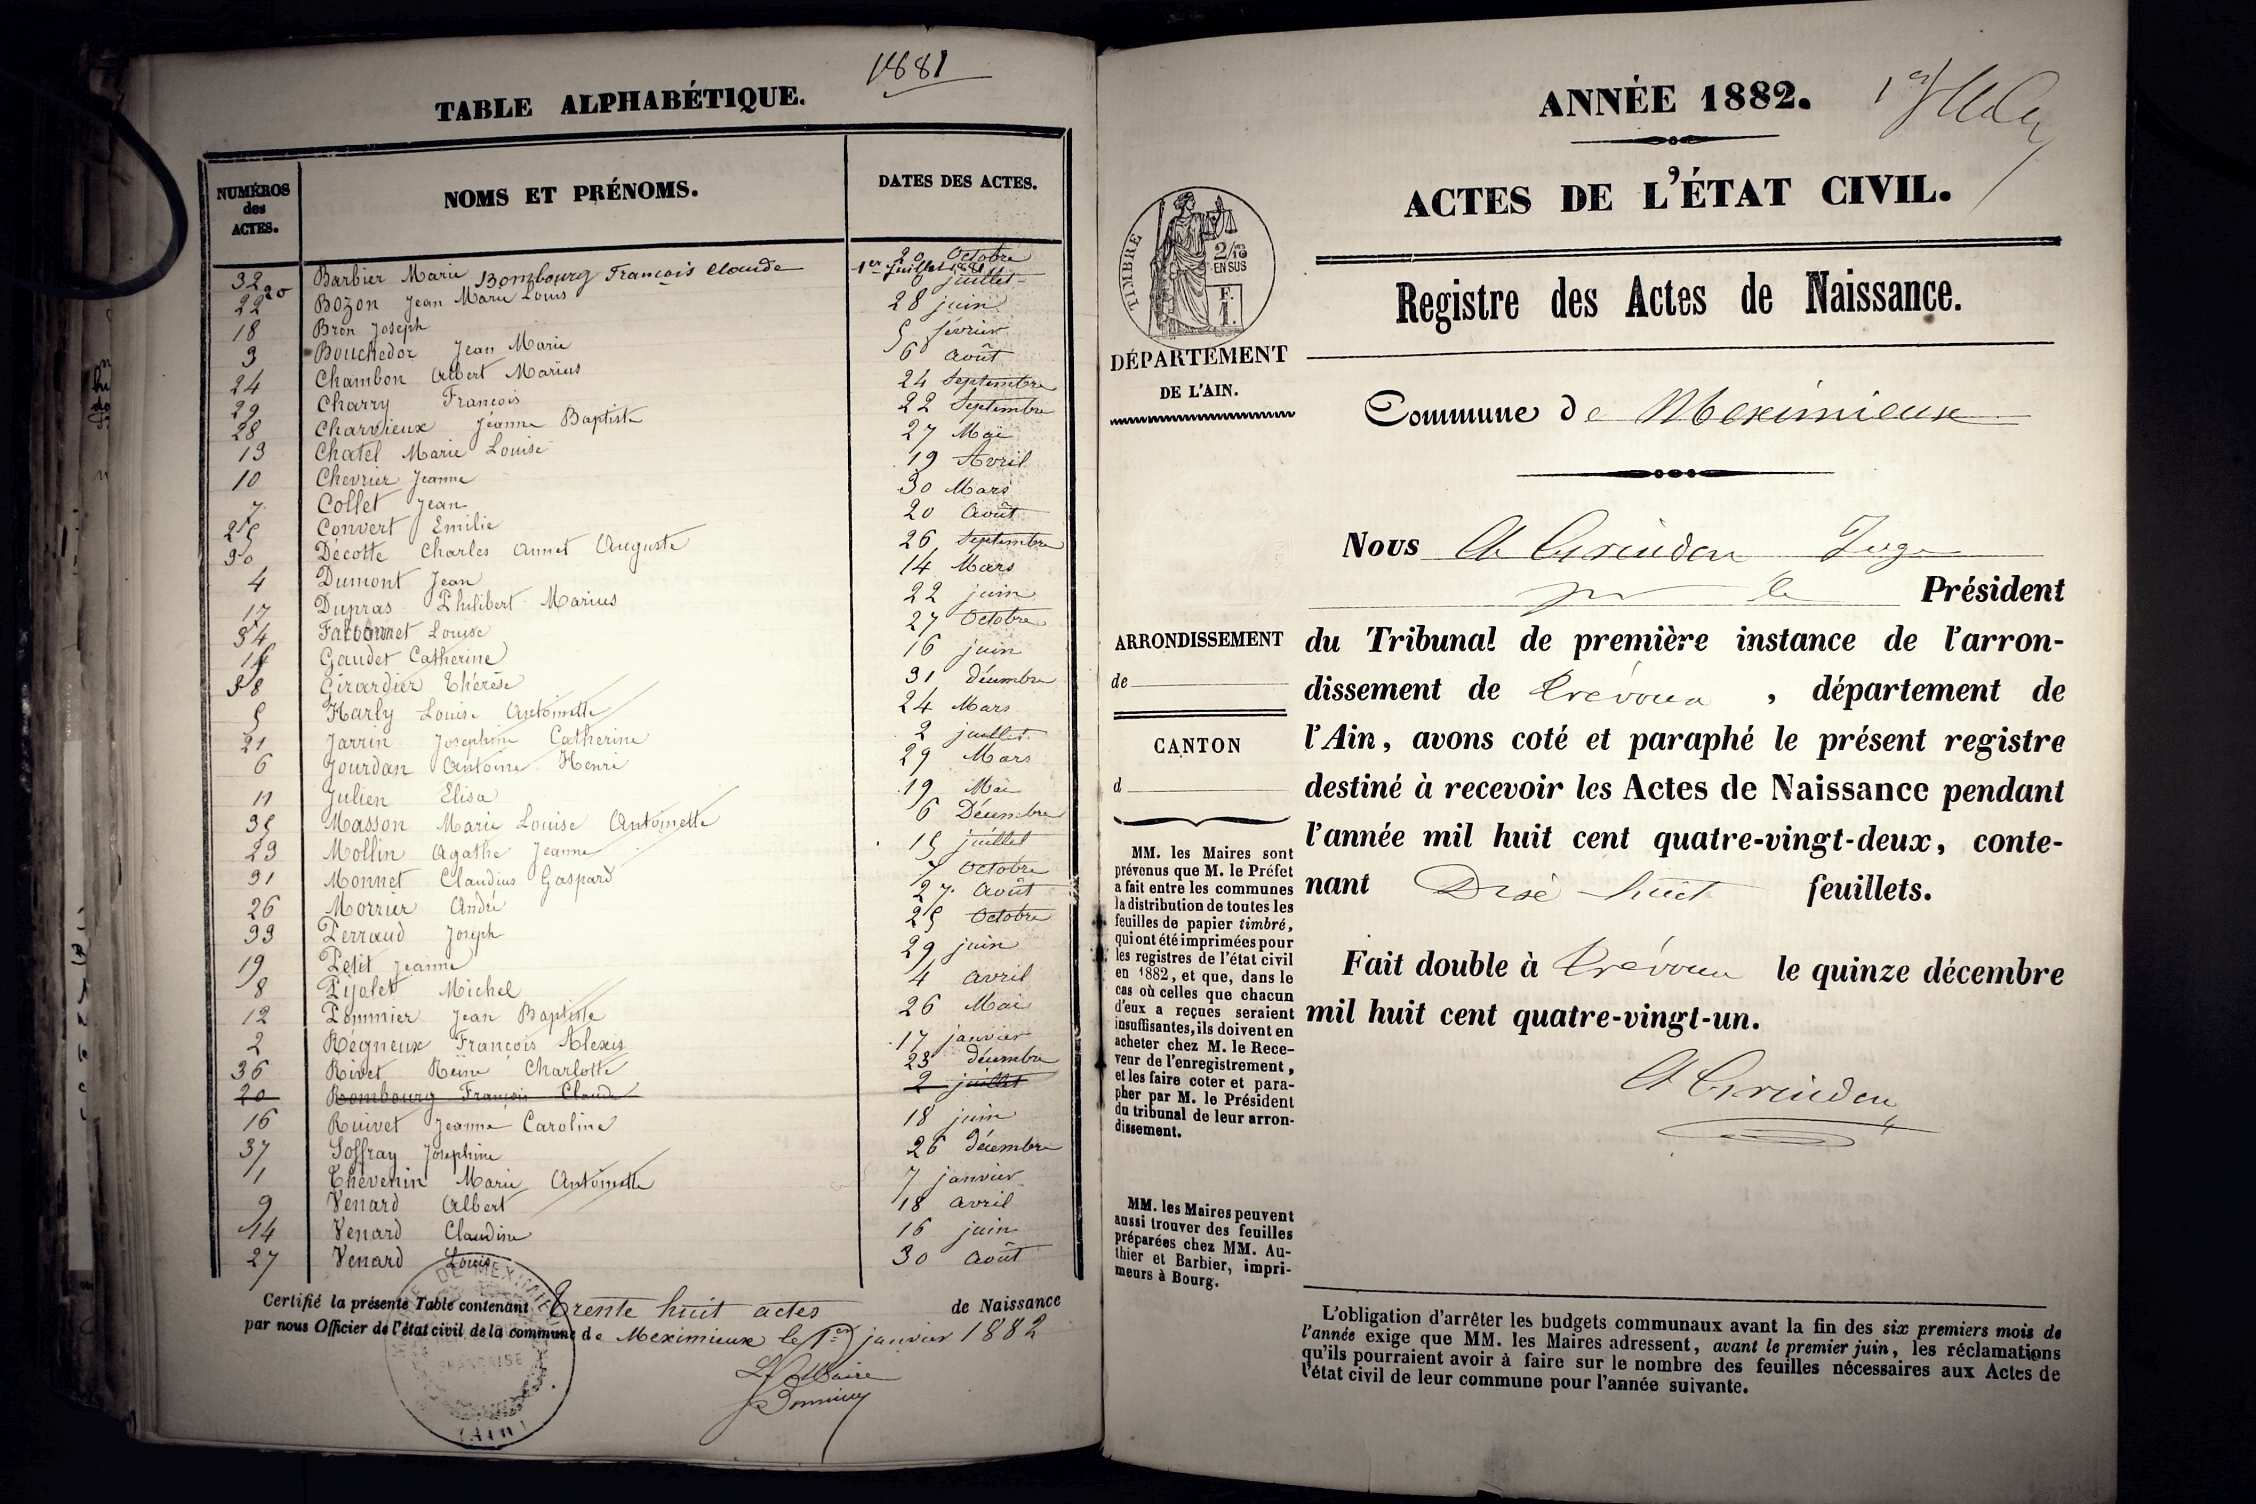 1881
TABLE ALPHABÉTIQUE.
NUMÉROS des ACTES. NOMS ET PRÉNOMS. DATES DES ACTES.
32 Barbier Marie 20 Octobre
20 Bombourg François Claude 1er Juillet 1881
22 Bozon Jean Marie Louis 6 juillet
18 Bron Joseph 28 juin
3 Bouchedor Jean Marie 5 février
24 Chambon Albert Marius 6 Août
29 Charry François 24 Septembre
28 Charvieux Jeanne Baptiste 22 Septembre
13 Chatel Marie Louise 27 Mai
10 Chevrier Jeanne 19 Avril
7 Collet Jean 30 Mars
25 Convert Emilie 20 Août
30 Décotte Charles Annet Auguste 26 Septembre
4 Dumont Jean 14 Mars
17 Dupras Philibert Marius 22 juin
34 Falconnet Louise 27 Octobre
15 Gaudet Catherine 16 juin
38 Girardier Thérèse 31 décembre
5 Harly Louise Antoinette 24 Mars
21 Jarrin Joséphine Catherine 2 juillet
6 Jourdan Antoine Henri 29 Mars
11 Julien Elisa 19 Mai
35 Masson Marie Louise Antoinette 6 Décembre
23 Mollin Agathe Jeanne 15 juillet
31 Monnet Claudius Gaspard 7 Octobre
26 Morrier André 27 Août
33 Perraud Joseph 25 Octobre
19 Petit Jeanne 29 juin
8 Pijolet Michel 4 avril
12 Pommier Jean Baptiste 26 Mai
2 Régneux François Alexis 17 janvier
36 Rivet Reine Charlotte 23 décembre
20 Rombourg François Claude 2 juillet
16 Ruivet Jeanne Caroline 18 juin
37 Soffray Joséphine 26 décembre
1 Thévenin Marie Antoinette 7 janvier
9 Venard Albert 18 avril
14 Venard Claudine 16 juin
27 Venard Louis 30 Août
Certifié la présente Table contenant Trente huit actes de Naissance
par nous Officier de l'état civil de la commune de Meximieux le 1er janvier 1882
Le Maire
DE MEXIMIEUX
FRANÇAISE
(AIN)
ANNÉE 1882.
ACTES DE L'ÉTAT CIVIL.
TIMBRE
2/10 EN SUS
F. 1.
DÉPARTEMENT
DE L'AIN.
Registre des Actes de Naissance.
Commune de Meximieux
Nous Grindon Juge
pr le Président
du Tribunal de première instance de l'arron-
dissement de Trévoux, département de
l'Ain, avons coté et paraphé le présent registre
destiné à recevoir les Actes de Naissance pendant
l'année mil huit cent quatre-vingt-deux, conte-
nant Dix huit feuillets.
Fait double à Trévoux le quinze décembre
mil huit cent quatre-vingt-un.
Grindon
ARRONDISSEMENT
de
CANTON
d
MM. les Maires sont
prévenus que M. le Préfet
a fait entre les communes
la distribution de toutes les
feuilles de papier timbré,
qui ont été imprimées pour
les registres de l'état civil
en 1882, et que, dans le
cas où celles que chacun
d'eux a reçues seraient
insuffisantes, ils doivent en
acheter chez M. le Rece-
veur de l'enregistrement,
et les faire coter et para-
pher par M. le Président
du tribunal de leur arron-
dissement.
MM. les Maires peuvent
aussi trouver des feuilles
préparées chez MM. Au-
thier et Barbier, impri-
meurs à Bourg.
L'obligation d'arrêter les budgets communaux avant la fin des six premiers mois de
l'année exige que MM. les Maires adressent, avant le premier juin, les réclamations
qu'ils pourraient avoir à faire sur le nombre des feuilles nécessaires aux Actes de
l'état civil de leur commune pour l'année suivante.